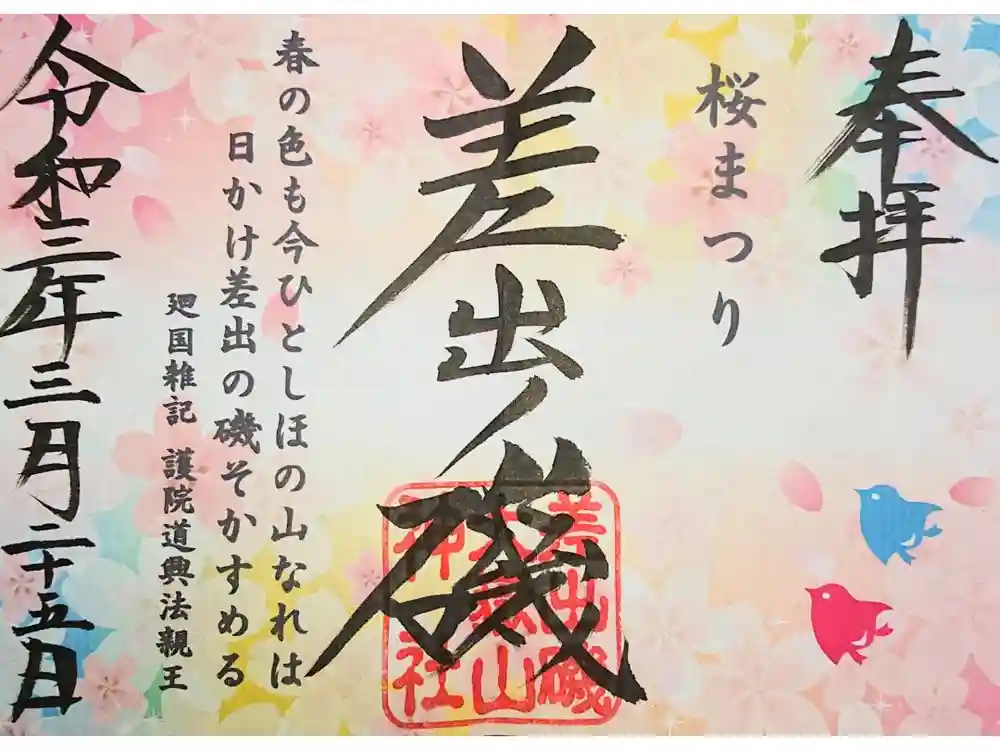 奉拝
桜まつり
差出ノ磯
差出磯
大嶽山
神社
春の色も今ひとしほの山なれは
日かけ差出の磯そかすめる
廻国雑記 護院道興法親王
令和三年三月二十五日